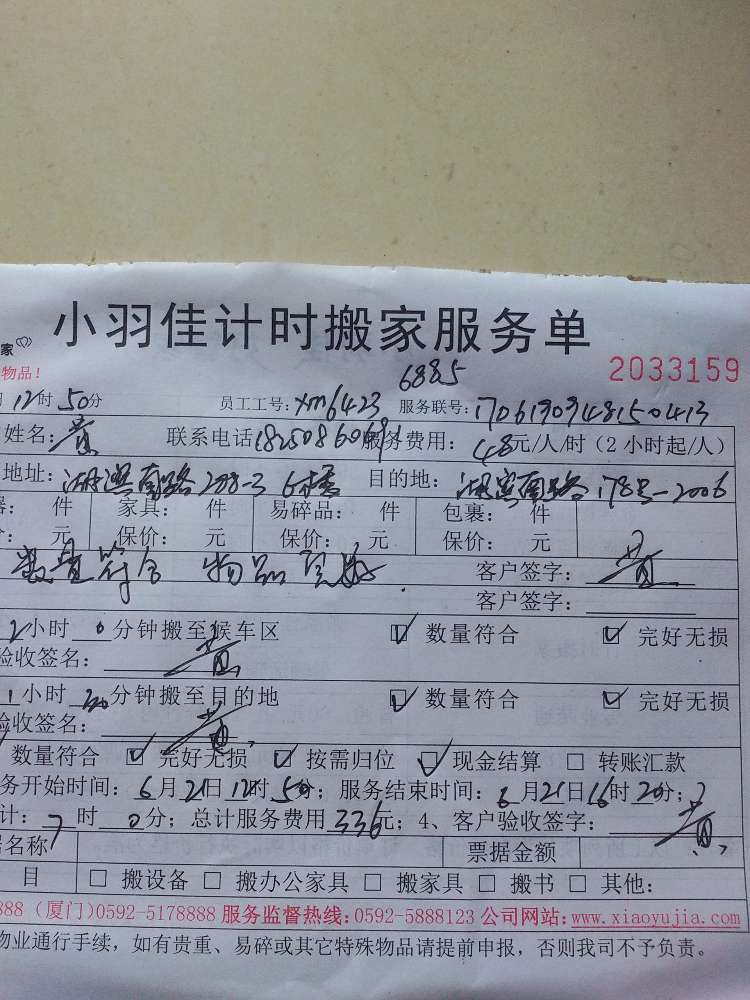 小羽佳计时搬家服务单
家
2033159
物品！
6885
12时50分 员工工号：xm6423 服务联号：1706190948150413
姓名：黄 联系电话 服务费用：48元/人/时（2小时起/人）
地址：湖滨南路 6楼 目的地：湖滨南路178号-2006
件 家具： 件 易碎品： 件 包裹： 件
元 保价： 元 保价： 元 保价： 元
数量符合 物品完好 客户签字：黄
客户签字：
2小时0分钟搬至候车区 ☑ 数量符合 ☑ 完好无损
验收签名：黄
1小时30分钟搬至目的地 ☑ 数量符合 ☑ 完好无损
验收签名：黄
数量符合 ☑ 完好无损 ☑ 按需归位 ☑ 现金结算 □ 转账汇款
务开始时间：6月21日12时50分；服务结束时间：6月21日16时20分；
计：7时0分；总计服务费用336元；4、客户验收签字：黄
据名称 票据金额
目 □ 搬设备 □ 搬办公家具 □ 搬家具 □ 搬书 □ 其他：
888（厦门）0592-5178888 服务监督热线：0592-5888123 公司网站：www.xiaoyujia.com
物业通行手续，如有贵重、易碎或其它特殊物品请提前申报，否则我司不予负责。